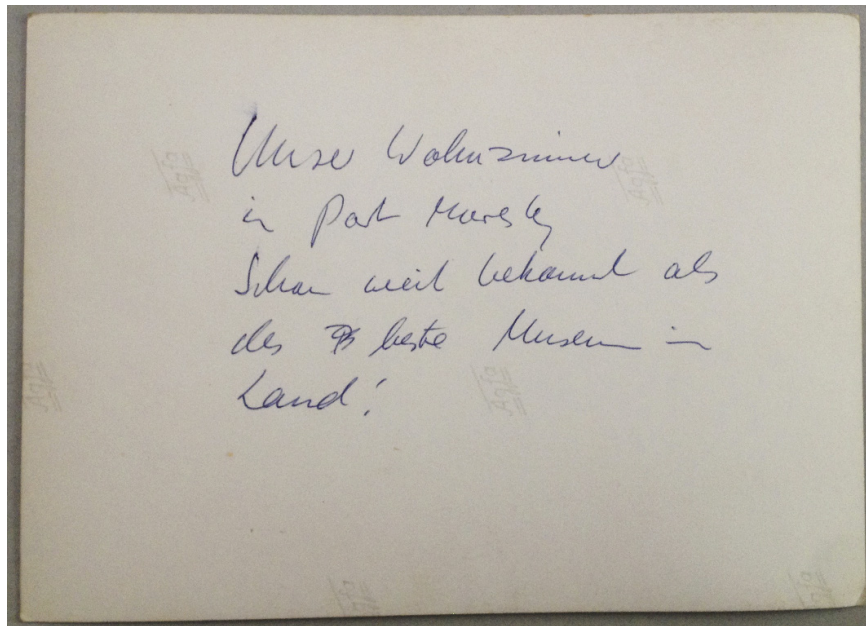 Unser Wohnzimmer
in Port Moresby
Schon weit bekannt als
das beste Museum im
Land!
Agfa
Agfa
Agfa
Agfa
Agfa
Agfa